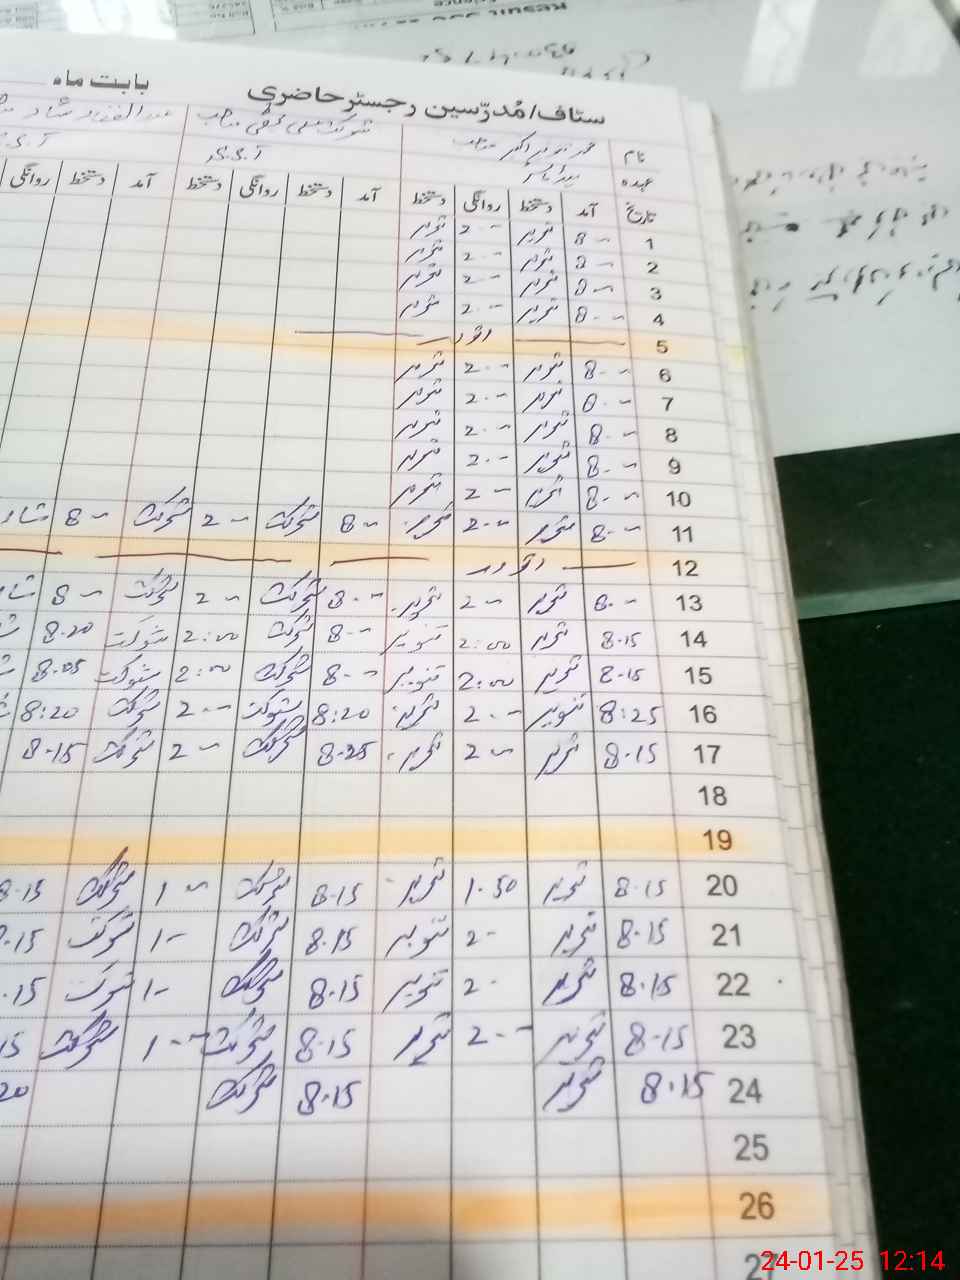 سٹاف/مُدرّسین رجسٹر حاضری بابت ماہ
نام
عہدہ
تاریخ آمد دستخط روانگی دستخط آمد دستخط روانگی دستخط آمد دستخط روانگی
1 8-- تنویر 2-- تنویر
2 8-- تنویر 2-- تنویر
3 8-- تنویر 2-- تنویر
4 8-- تنویر 2-- تنویر
5 اتوار
6 8-- تنویر 2-- تنویر
7 8-- تنویر 2-- تنویر
8 8-- تنویر 2-- تنویر
9 8-- تنویر 2-- تنویر
10 8-- تنویر 2-- تنویر
11 8-- تنویر 2-- تنویر 8-- شوکت 2-- شوکت 8--
12 اتوار
13 8-- تنویر 2-- تنویر 8-- شوکت 2-- شوکت 8--
14 8.15 تنویر 2:00 تنویر 8-- شوکت 2:00 شوکت 8.20
15 8.15 تنویر 2:00 تنویر 8-- شوکت 2:00 شوکت 8.05
16 8:25 تنویر 2-- تنویر 8:20 شوکت 2-- شوکت 8:20
17 8.15 تنویر 2-- تنویر 8.25 شوکت 2-- شوکت 8.15
18
19
20 8.15 تنویر 1.50 تنویر 8.15 شوکت 1-- شوکت 8.15
21 8.15 تنویر 2- تنویر 8.15 شوکت 1- شوکت .15
22 8.15 تنویر 2- تنویر 8.15 شوکت 1- شوکت .15
23 8.15 تنویر 2-- تنویر 8.15 شوکت 1-- شوکت 15
24 8.15 تنویر 8.15 شوکت 20
25
26
27
24-01-25 12:14